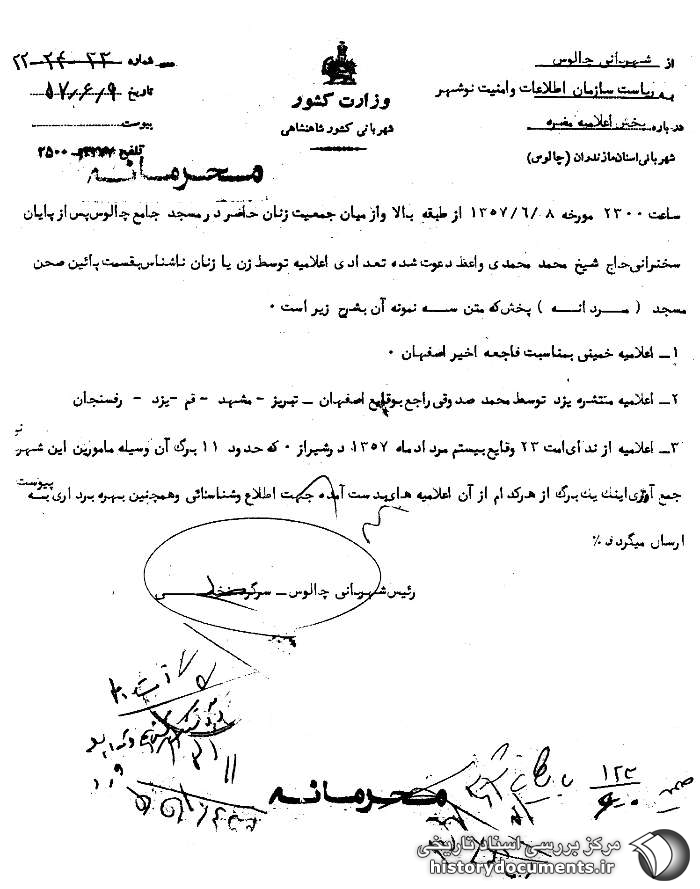 از شهربانی چالوس
به ریاست سازمان اطلاعات وامنیت نوشهر
درباره پخش اعلامیه مضره
شهربانی استان مازندران (چالوس)
وزارت کشور
شهربانی کشور شاهنشاهی
شماره ۲۲-۲۴-۳۳
تاریخ ۵۷/۶/۹
پیوست
تلفن ۲۵۰۰
محرمانه
ساعت ۲۳۰۰ مورخه ۱۳۵۷/۶/۸ از طبقه بالا واز میان جمعیت زنان حاضر در مسجد جامع چالوس پس از پایان
سخنرانی حاج شیخ محمد محمدی واعظ دعوت شده تعدادی اعلامیه توسط زن یا زنان ناشناس بقسمت پائین صحن
مسجد ( مردانه ) پخش که متن سه نمونه آن بشرح زیر است ۰
۱ـ اعلامیه خمینی بمناسبت فاجعه اخیر اصفهان ۰
۲ـ اعلامیه منتشره یزد توسط محمد صدوقی راجع بوقایع اصفهان ـ تبریز - مشهد - قم - یزد - رفسنجان
۳ـ اعلامیه از ندای امت ۲۳ وقایع بیستم مردادماه ۱۳۵۷ در شیراز ۰ که حدود ۱۱ برگ آن وسیله مامورین این شهر
جمع آوری اینک یک برگ از هرکدام از آن اعلامیه های بدست آمده جهت اطلاع وشناسائی وهمچنین بهره برداری به پیوست
ارسال میگردد٪
رئیس شهربانی چالوس ـ سرگرد
محرمانه
۱۲۳
مرکز بررسی اسناد تاریخی
historydocuments.ir